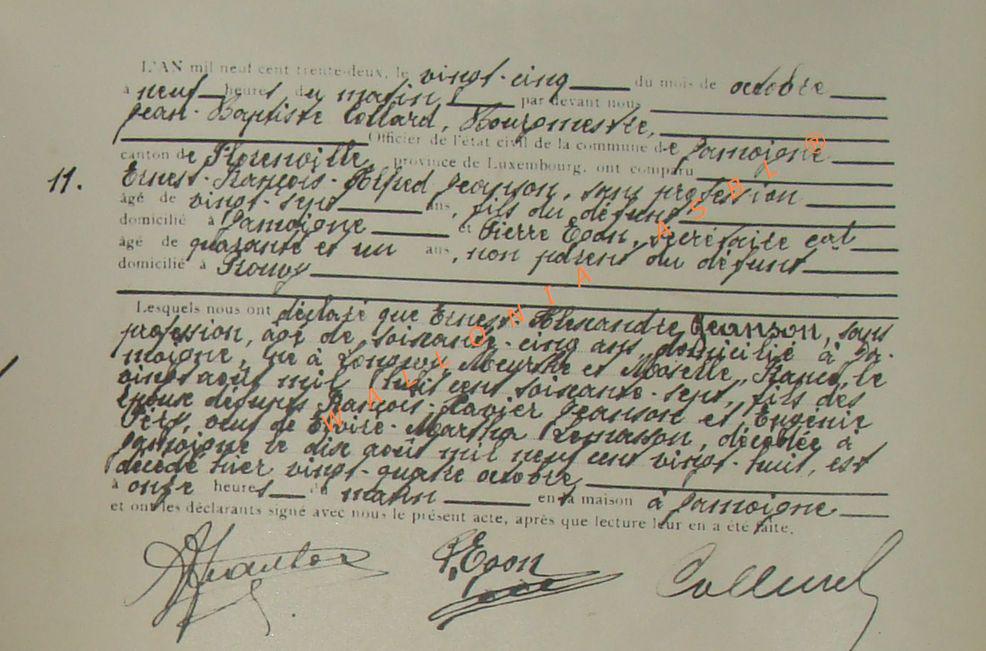 L'AN mil neuf cent trente-deux, le vingt-cinq du mois de octobre
à neuf heures du matin par devant nous
Jean-Baptiste Collard, Bourgmestre,
Officier de l'état civil de la commune de Jamoigne
canton de Florenville, province de Luxembourg, ont comparu
11. Ernest-François-Alfred Jeanson, sans profession
âgé de vingt-sept ans, fils du défunt
domicilié à Jamoigne et Pierre Egon, secrétaire cal
âgé de quarante et un ans, non parent du défunt
domicilié à
Lesquels nous ont déclaré que Ernest-Alexandre Jeanson, sans
profession, âgé de soixante-cinq ans, domicilié à Ja-
moigne, né à Longwy, Meurthe et Moselle, France, le
vingt août mil huit cent soixante-sept, fils des
époux défunts François-Xavier Jeanson et Eugénie
veuf de Martha décédée à
Jamoigne le dix août mil neuf cent vingt-huit, est
décédé hier vingt-quatre octobre
à onze heures du matin en sa maison à Jamoigne
et ont les déclarants signé avec nous le présent acte, après que lecture leur en a été faite.
P. Egon
WALLONIA ASBL ®